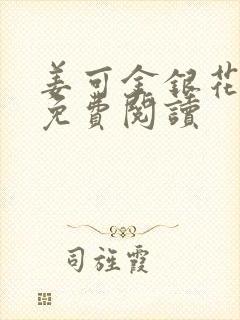 姜可金銀花
免費閱讀
司旌霞